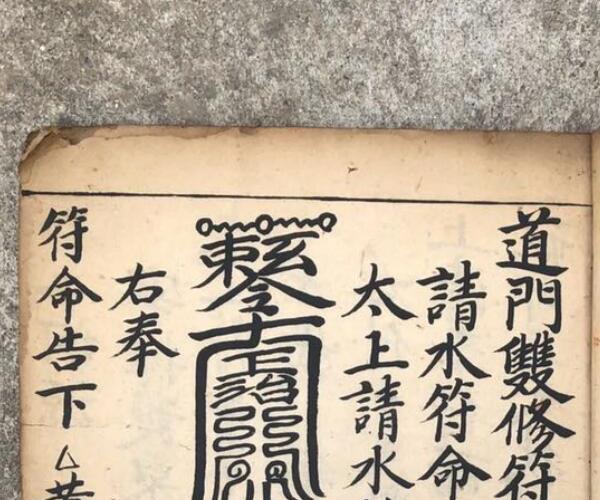 道門雙修符
請水符命
太上請水
敕令
右奉
符命告下